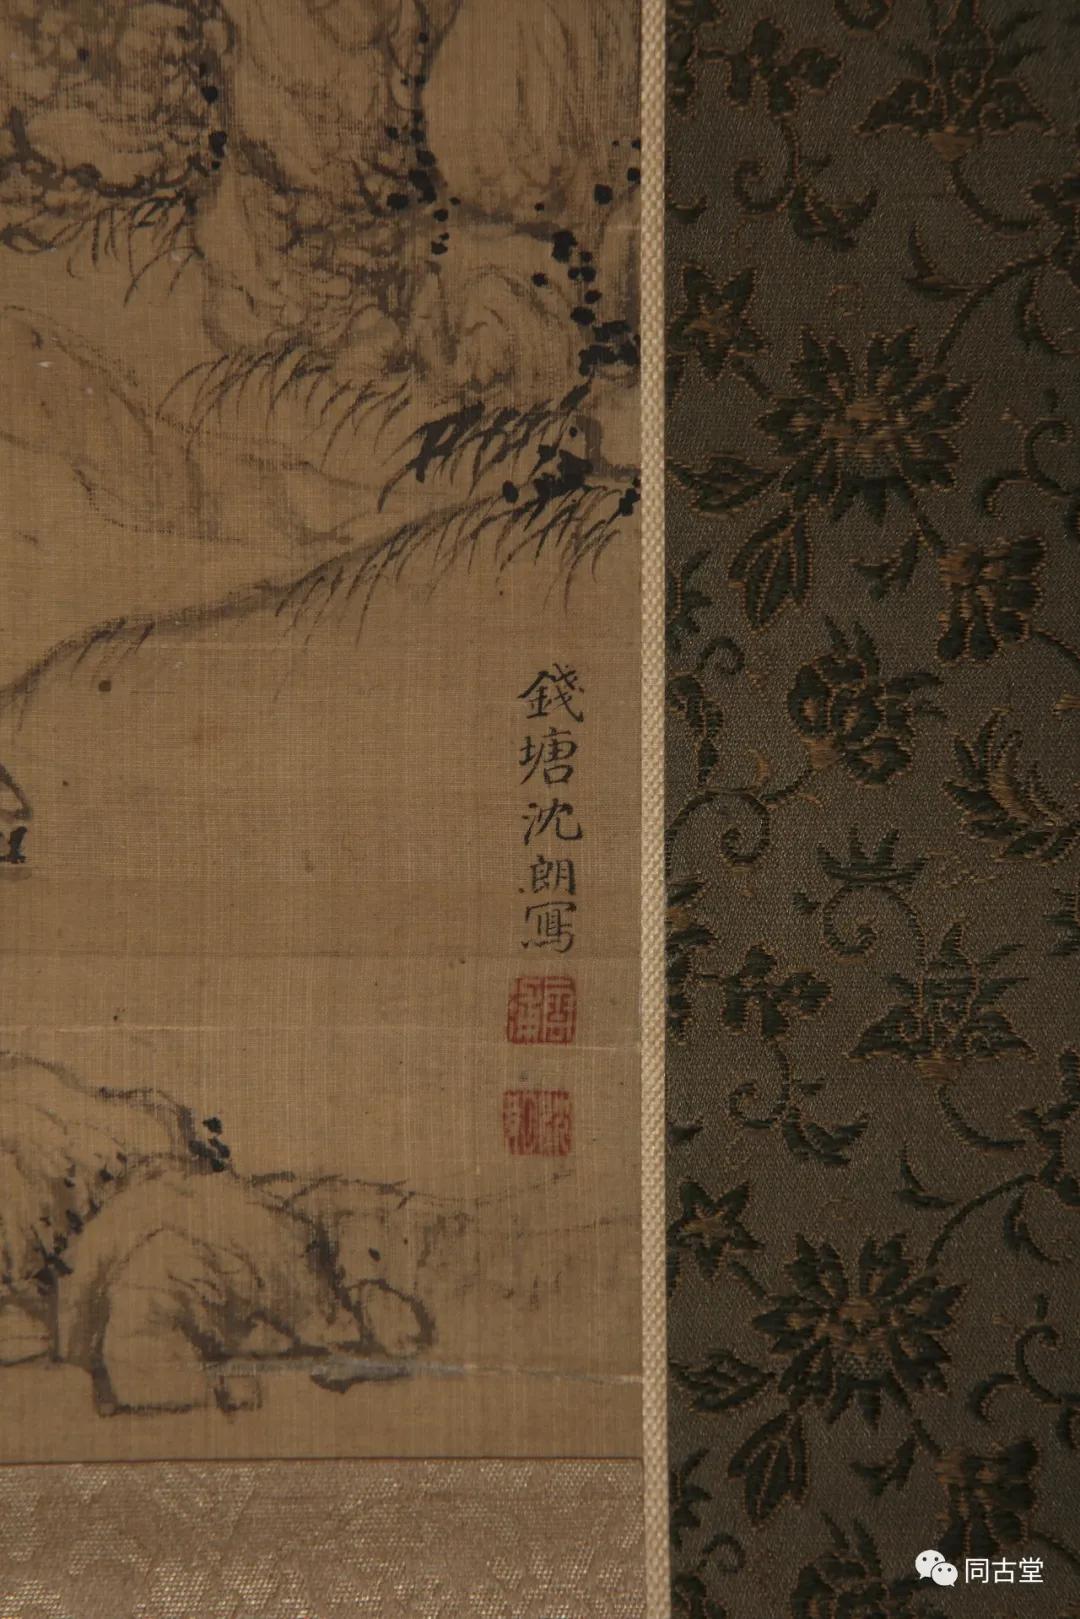 錢塘沈朗寫
同古堂